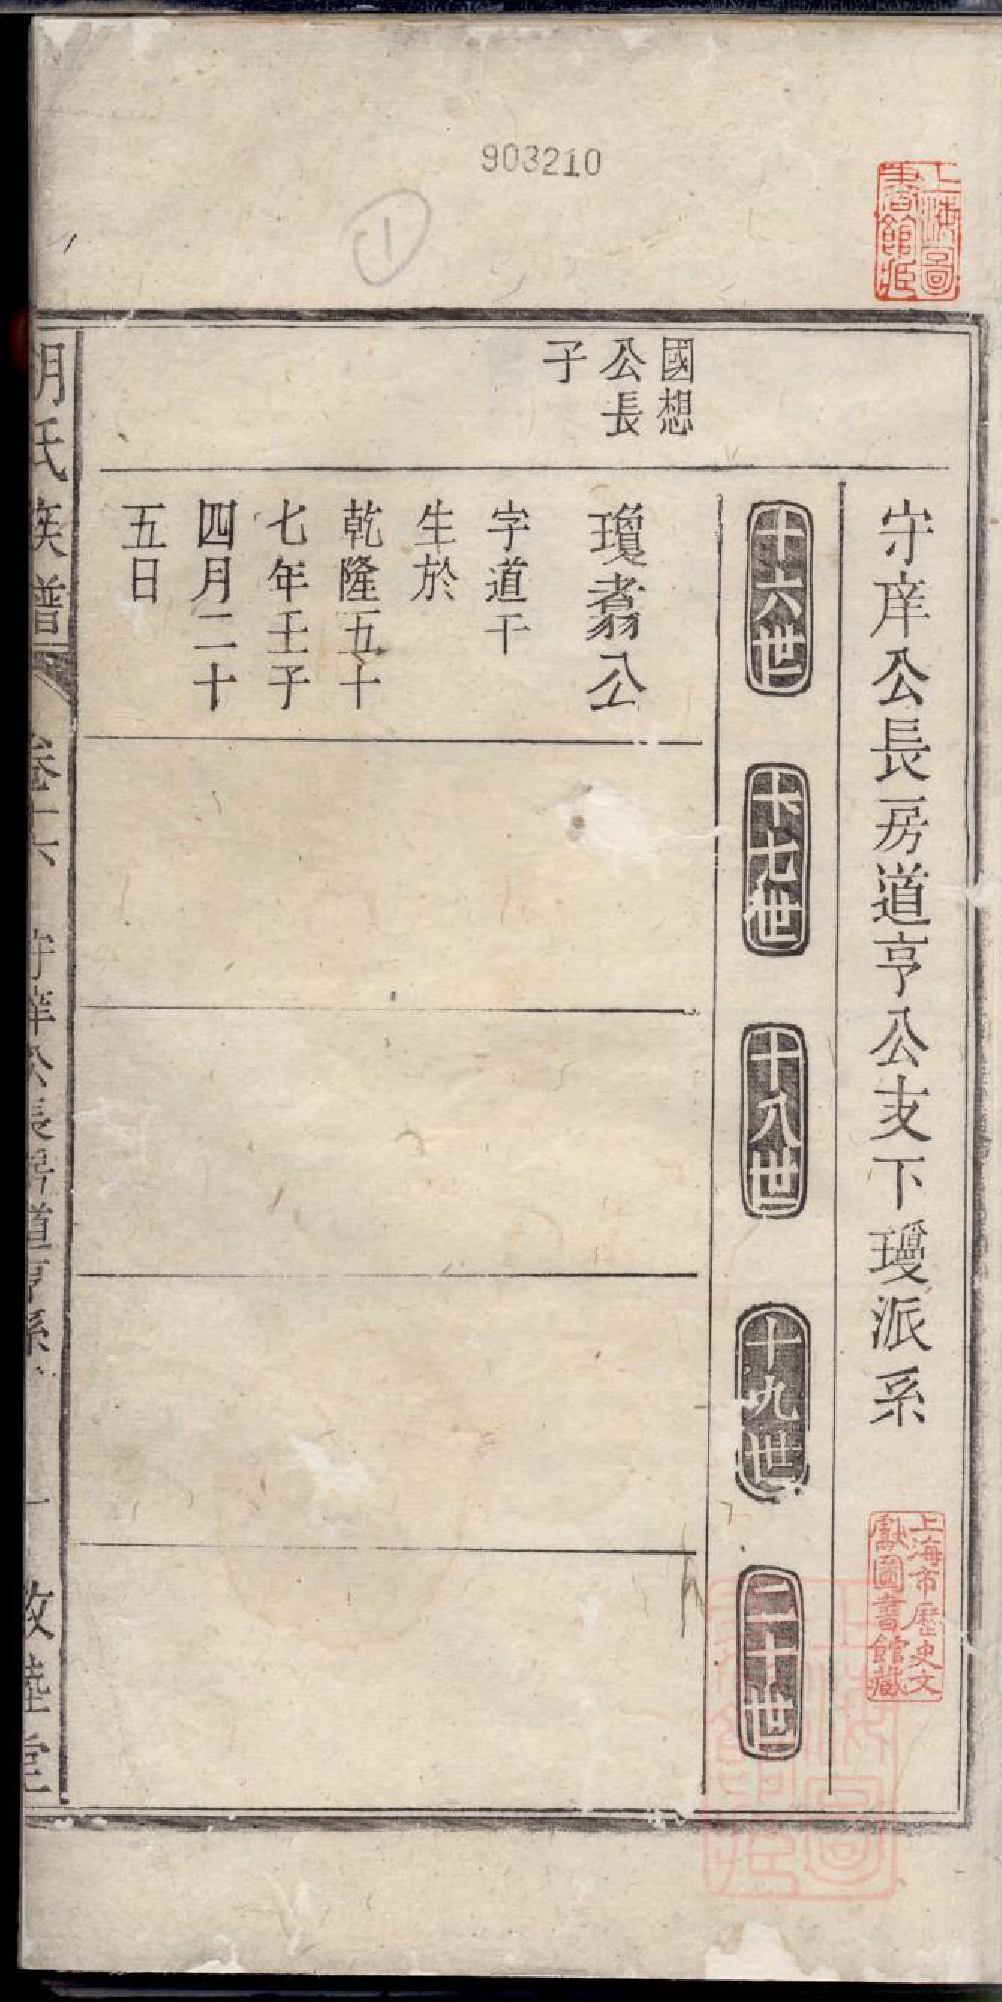 903210
1
上海圖書館藏
守庠公長房道亨公支下璦派系
上海市歷史文獻圖書館藏
十六世
十七世
十八世
十九世
二十世
國想
公長
子
瓊翥公
字道干
生於
乾隆五十
七年壬子
四月二十
五日
胡氏族譜
卷十六
守庠公長房道亨系
敦睦堂